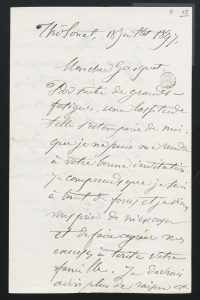 Tholonet, 18 Juillet 1897.
Mon cher Gasquet,
Par suite de grandes
fatigues, une lassitude
telle s'est emparée de moi,
que je ne puis me rendre
à votre bonne invitation.
je comprends que je suis
à bout de forces, et je viens
vous prier de m'excuser
et de faire agréer mes
excuses à toute votre
famille. Je devrais
avoir plus de raison et